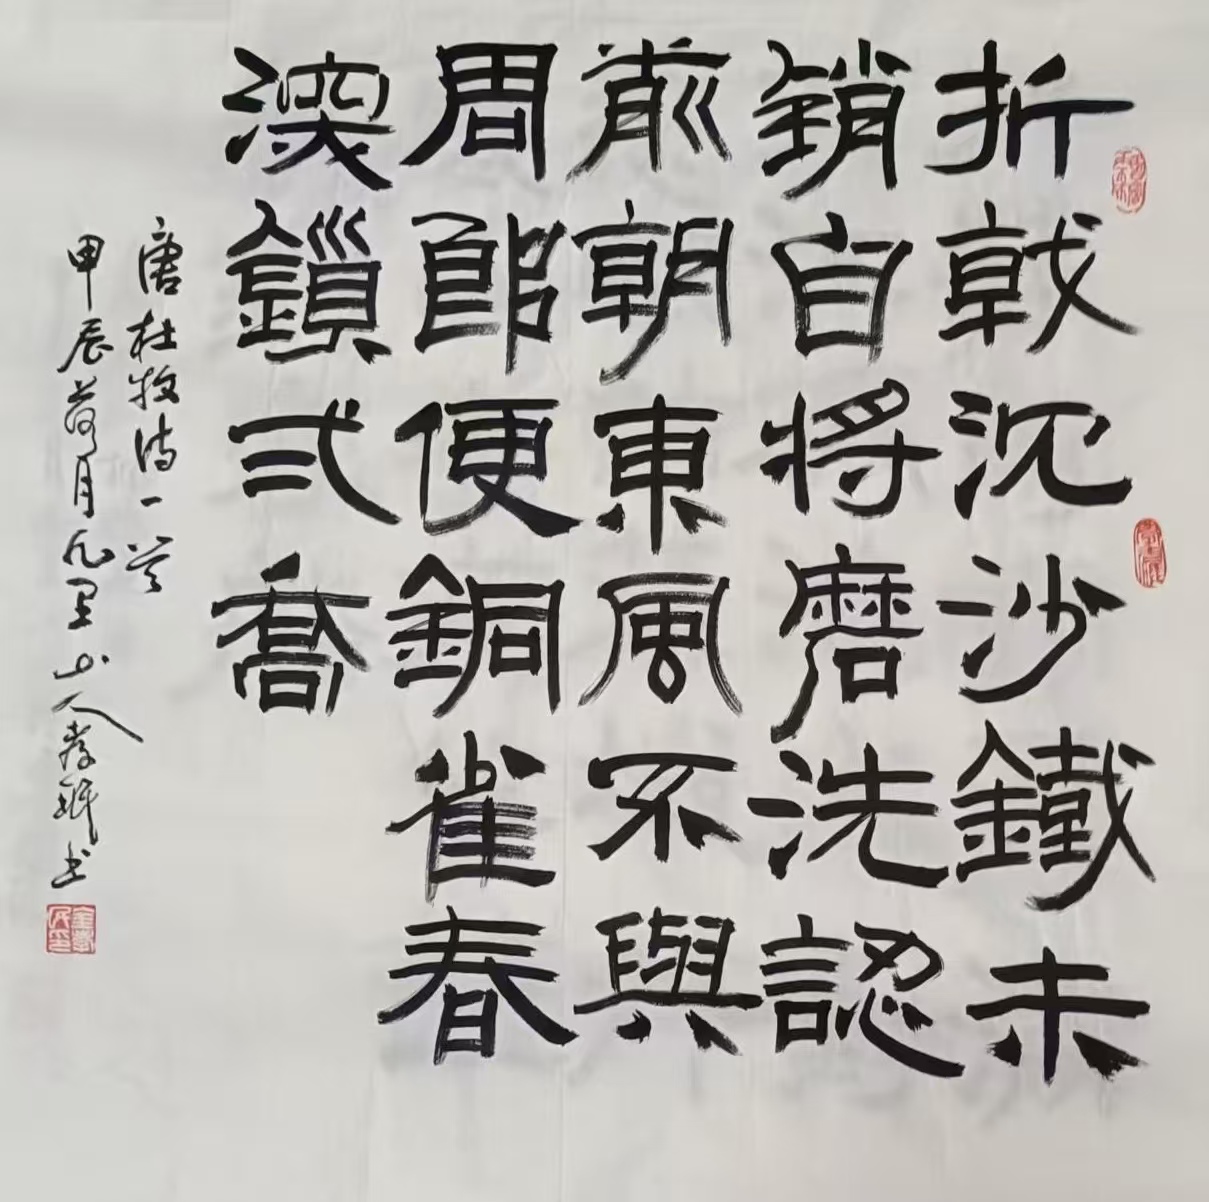 折戟沈沙鐵未
銷自将磨洗認
前朝東風不與
周郎便銅雀春
深鎖弍喬
唐杜牧诗一首
甲辰荷月山人书